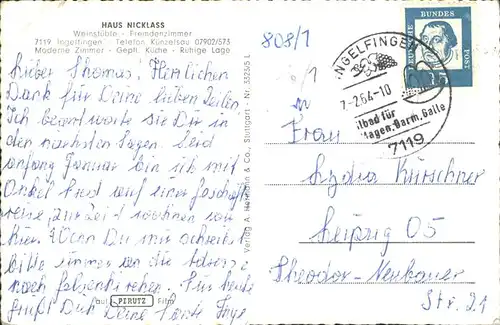 HAUS NICKLASS
Weinstüble - Fremdenzimmer
7119 Ingelfingen Telefon Künzelsau 07902/575
Moderne Zimmer - Gepfl. Küche - Ruhige Lage
Lieber Thomas, Herzlichen
Dank für Deine lieben Zeilen
Ich beantworte sie Dir in
den nächsten Tagen. Seid
anfang Januar bin ich mit
Onkel Fred auf einer Geschäfts
reise, zur Zeit wohnen wir
hier. Wenn Du mir schreibst
bitte immer an die Adresse
nach Für heute
grüßt Dich Deine Tante Inge
auf PERUTZ Film
Verlag A. & Co., Stuttgart - Nr. 3325/5 L
808/1
INGELFINGEN
-2.64-10
ilbad für
Magen, Darm, Galle
7119
DEUTSCHE
BUNDES
POST
15
Frau
Lydia Kürschner
Leipzig O5
Theodor-Neubauer
Str. 21